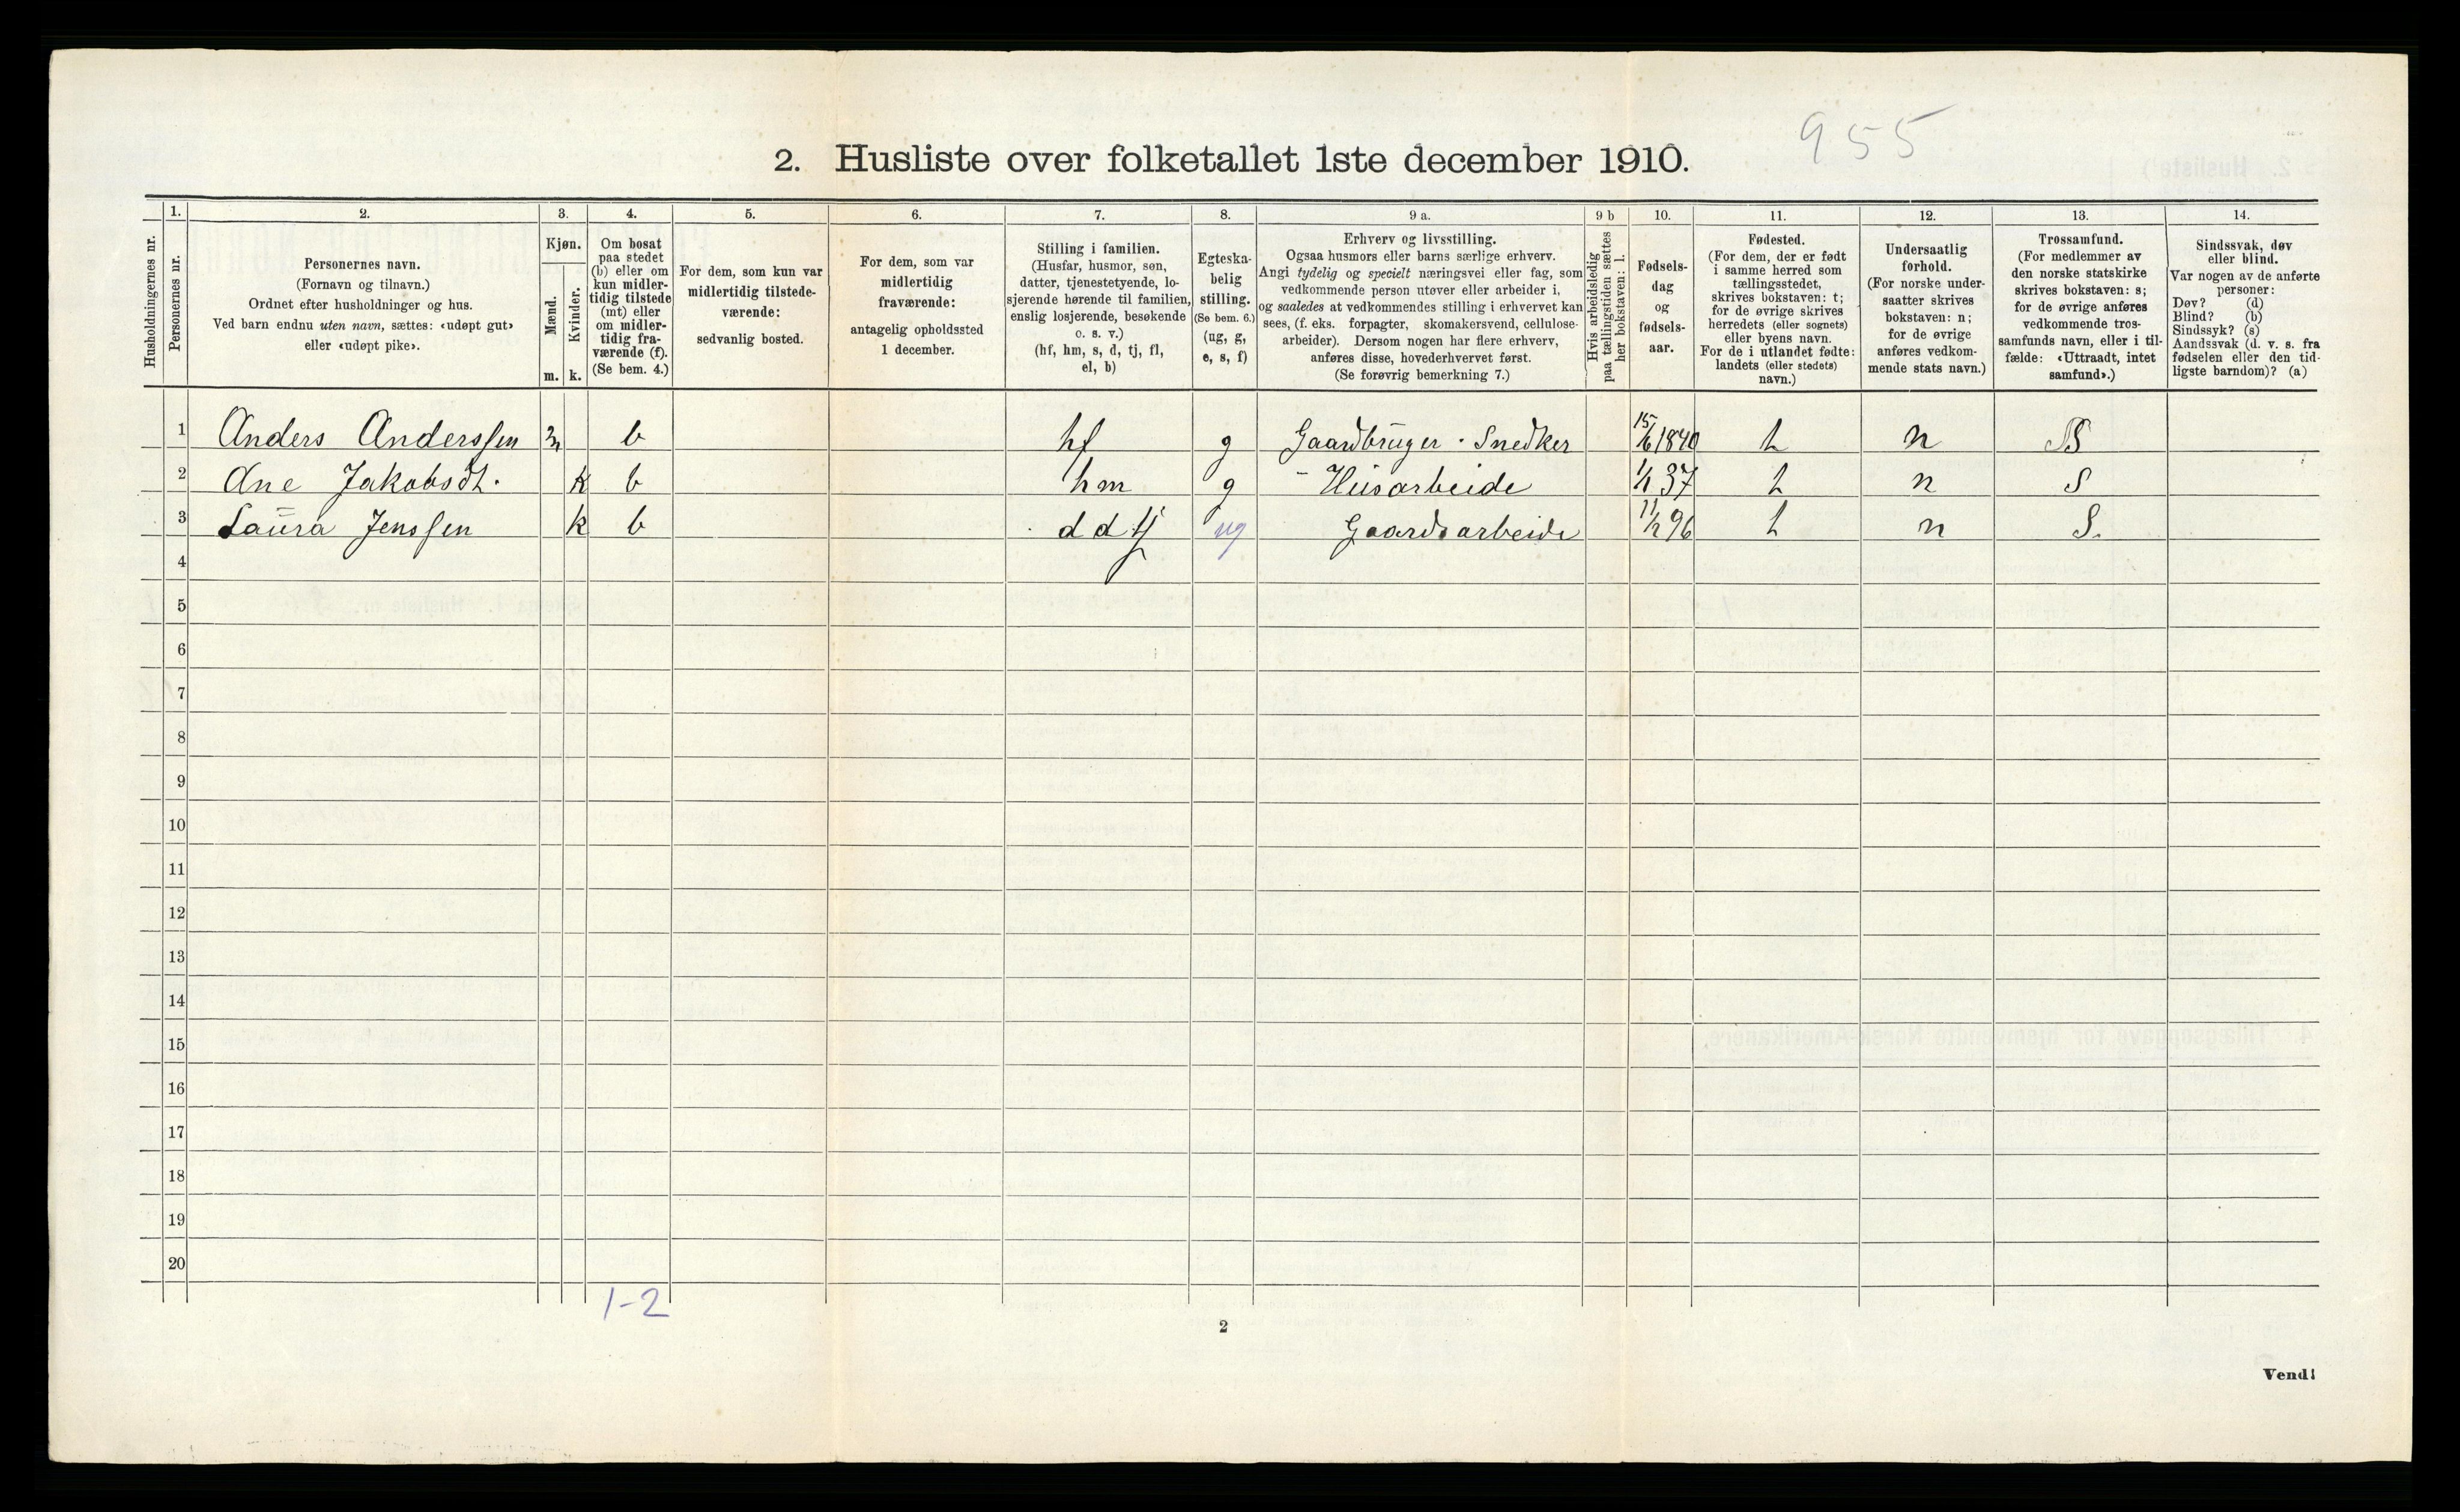 955
2. Husliste over folketallet 1ste december 1910.
Husholdningernes nr.
1.
Personernes nr.
2.
Personernes navn.
(Fornavn og tilnavn.)
Ordnet efter husholdninger og hus.
Ved barn endnu uten navn, sættes: «udøpt gut»
eller «udøpt pike».
3.
Kjøn.
Mænd.
Kvinder.
m. k.
4.
Om bosat
paa stedet
(b) eller om
kun midler-
tidig tilstede
(mt) eller
om midler-
tidig fra-
værende (f).
(Se bem. 4.)
5.
For dem, som kun var
midlertidig tilstede-
værende:
sedvanlig bosted.
6.
For dem, som var
midlertidig
fraværende:
antagelig opholdssted
1 december.
7.
Stilling i familien.
(Husfar, husmor, søn,
datter, tjenestetyende, lo-
sjerende hørende til familien,
enslig losjerende, besøkende
o. s. v.)
(hf, hm, s, d, tj, fl,
el, b)
8.
Egteska-
belig
stilling.
(Se bem. 6.)
(ug, g,
e, s, f)
9 a.
Erhverv og livsstilling.
Ogsaa husmors eller barns særlige erhverv.
Angi tydelig og specielt næringsvei eller fag, som
vedkommende person utøver eller arbeider i,
og saaledes at vedkommendes stilling i erhvervet kan
sees, (f. eks. forpagter, skomakersvend, cellulose-
arbeider). Dersom nogen har flere erhverv,
anføres disse, hovederhvervet først.
(Se forøvrig bemerkning 7.)
9 b
Hvis arbeidsledig
paa tællingstiden sættes
her bokstaven: l.
10.
Fødsels-
dag
og
fødsels-
aar.
11.
Fødested.
(For dem, der er født
i samme herred som
tællingsstedet,
skrives bokstaven: t;
for de øvrige skrives
herredets (eller sognets)
eller byens navn.
For de i utlandet fødte:
landets (eller stedets)
navn.)
12.
Undersaatlig
forhold.
(For norske under-
saatter skrives
bokstaven: n;
for de øvrige
anføres vedkom-
mende stats navn.)
13.
Trossamfund.
(For medlemmer av
den norske statskirke
skrives bokstaven: s;
for de øvrige anføres
vedkommende tros-
samfunds navn, eller i til-
fælde: «Uttraadt, intet
samfund».)
14.
Sindssvak, døv
eller blind.
Var nogen av de anførte
personer:
Døv? (d)
Blind? (b)
Sindssyk? (s)
Aandssvak (d. v. s. fra
fødselen eller den tid-
ligste barndom)? (a)
1 Anders Anderssen m b hf g Gaardbruger · Snedker 15/6 1840 t n S
2 Ane Jakobsdt. k b hm g - Husarbeide 1/1 37 t n S
3 Laura Jenssen k b d d tj ug Gaardsarbeide 11/2 96 t n S.
4
5
6
7
8
9
10
11
12
13
14
15
16
17
18
19
20
1-2
2
Vend!